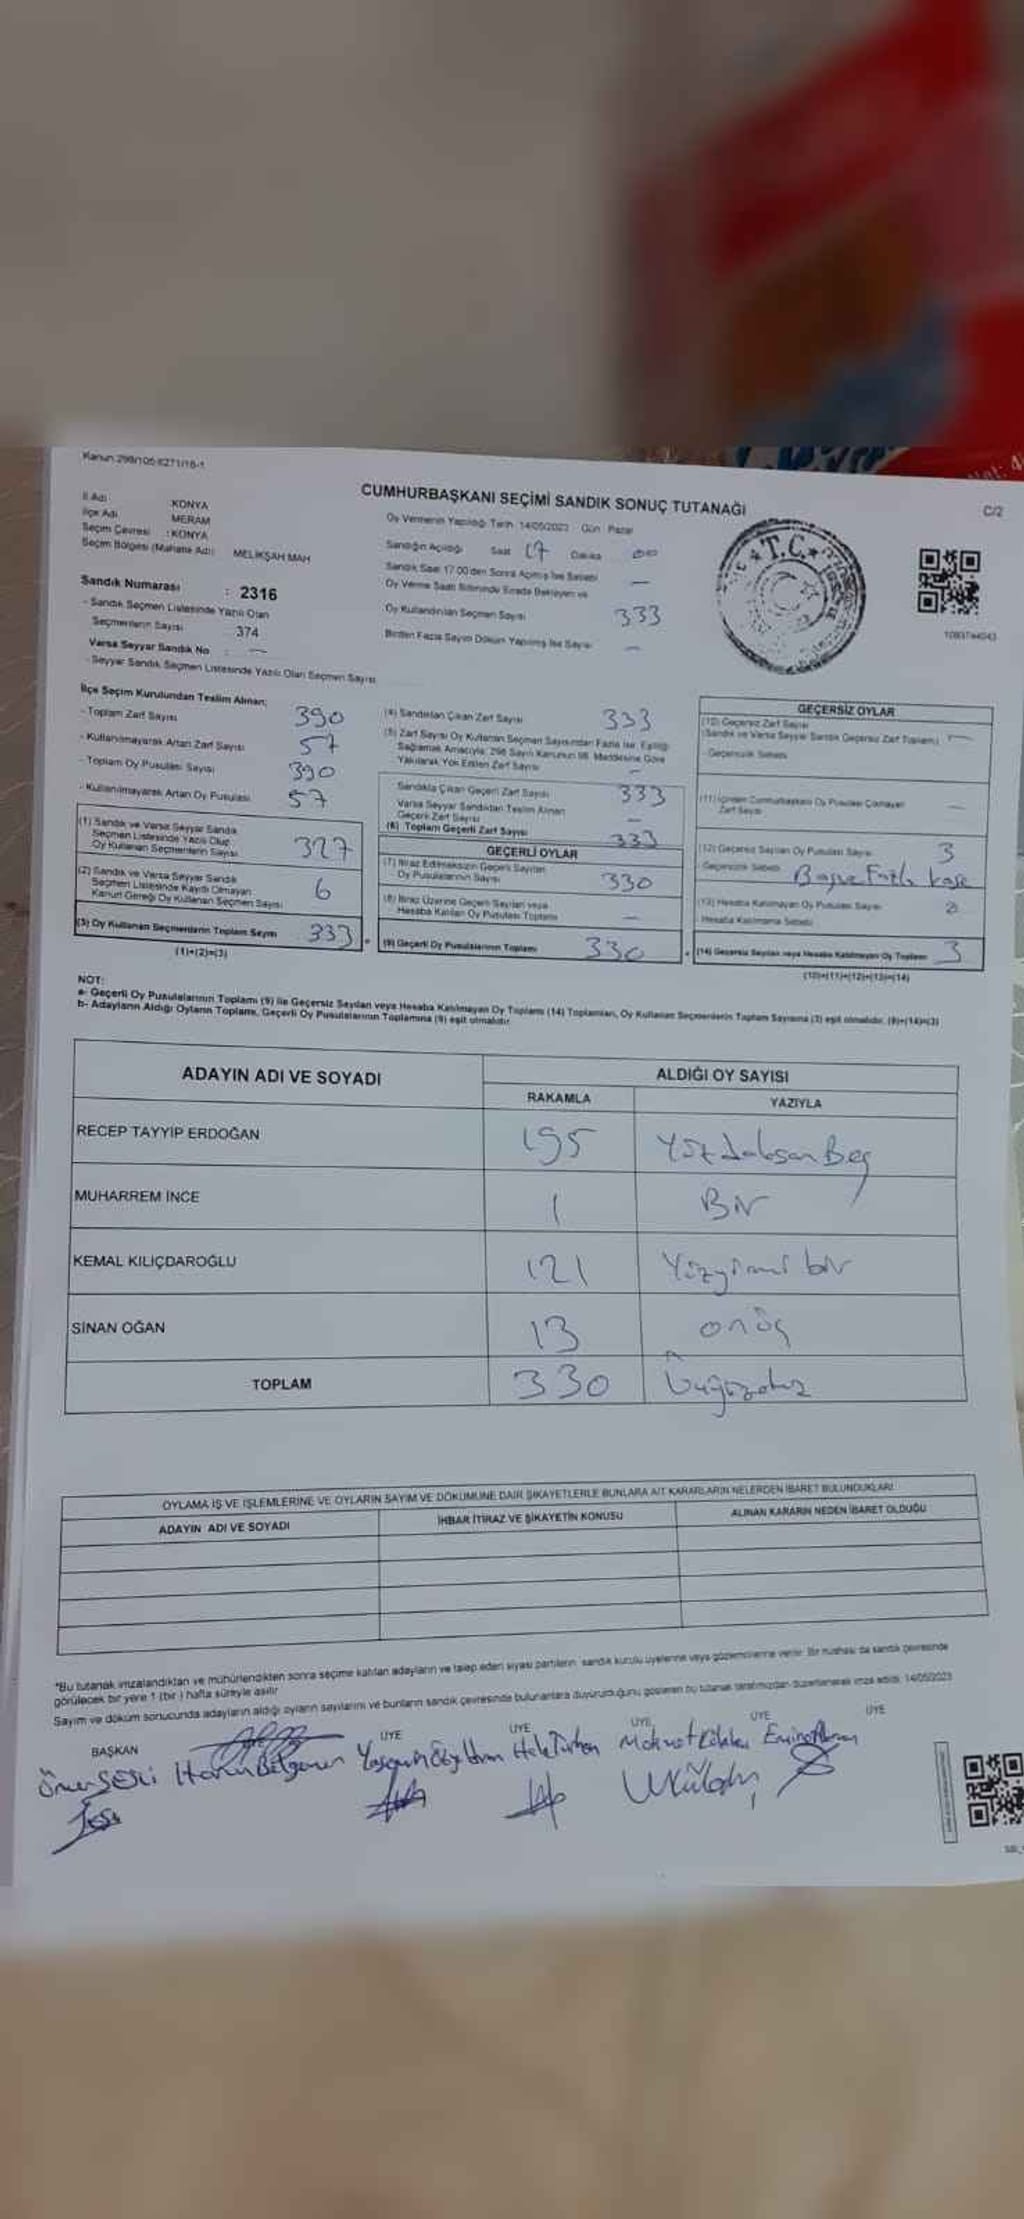 Kanun:298/105-6271/16-1
CUMHURBAŞKANI SEÇİMİ SANDIK SONUÇ TUTANAĞI
C/2
İl Adı KONYA
İlçe Adı MERAM
Seçim Çevresi : KONYA
Seçim Bölgesi (Mahalle Adı) MELİKŞAH MAH
Sandık Numarası : 2316
- Sandık Seçmen Listesinde Yazılı Olan
Seçmenlerin Sayısı 374
Varsa Seyyar Sandık No : —
- Seyyar Sandık Seçmen Listesinde Yazılı Olan Seçmen Sayısı
Oy Vermenin Yapıldığı Tarih 14/05/2023 Gün Pazar
Sandığın Açıldığı Saat 17 Dakika 00
Sandık Saat 17.00'den Sonra Açılmış İse Sebebi —
Oy Verme Saati Bitiminde Sırada Bekleyen ve
Oy Kullandırılan Seçmen Sayısı 333
Birden Fazla Sayım Döküm Yapılmış İse Sayısı —
T.C.
1093744043
İlçe Seçim Kurulundan Teslim Alınan;
- Toplam Zarf Sayısı 390
- Kullanılmayarak Artan Zarf Sayısı 57
- Toplam Oy Pusulası Sayısı 390
- Kullanılmayarak Artan Oy Pusulası 57
(1) Sandık ve Varsa Seyyar Sandık
Seçmen Listesinde Yazılı Olup
Oy Kullanan Seçmenlerin Sayısı 327
(2) Sandık ve Varsa Seyyar Sandık
Seçmen Listesinde Kayıtlı Olmayan
Kanun Gereği Oy Kullanan Seçmen Sayısı 6
(3) Oy Kullanan Seçmenlerin Toplam Sayısı 333
(1)+(2)=(3)
(4) Sandıktan Çıkan Zarf Sayısı 333
(5) Zarf Sayısı Oy Kullanan Seçmen Sayısından Fazla İse, Eşitliği
Sağlamak Amacıyla, 298 Sayılı Kanunun 98. Maddesine Göre
Yakılarak Yok Edilen Zarf Sayısı —
Sandıkta Çıkan Geçerli Zarf Sayısı 333
Varsa Seyyar Sandıktan Teslim Alınan
Geçerli Zarf Sayısı —
(6) Toplam Geçerli Zarf Sayısı 333
GEÇERLİ OYLAR
(7) İtiraz Edilmeksizin Geçerli Sayılan
Oy Pusulalarının Sayısı 330
(8) İtiraz Üzerine Geçerli Sayılan veya
Hesaba Katılan Oy Pusulası Toplamı —
(9) Geçerli Oy Pusulalarının Toplamı 330
GEÇERSİZ OYLAR
(10) Geçersiz Zarf Sayısı
(Sandık ve Varsa Seyyar Sandık Geçersiz Zarf Toplamı) —
- Geçersizlik Sebebi
(11) İçinden Cumhurbaşkanı Oy Pusulası Çıkmayan
Zarf Sayısı —
(12) Geçersiz Sayılan Oy Pusulası Sayısı 3
- Geçersizlik Sebebi
(13) Hesaba Katılmayan Oy Pusulası Sayısı
- Hesaba Katılmama Sebebi
(14) Geçersiz Sayılan veya Hesaba Katılmayan Oy Toplamı 3
(10)+(11)+(12)+(13)=(14)
NOT:
a- Geçerli Oy Pusulalarının Toplamı (9) ile Geçersiz Sayılan veya Hesaba Katılmayan Oy Toplamı (14) Toplamları, Oy Kullanan Seçmenlerin Toplam Sayısına (3) eşit olmalıdır. (9)+(14)=(3)
b- Adayların Aldığı Oyların Toplamı, Geçerli Oy Pusulalarının Toplamına (9) eşit olmalıdır.
ADAYIN ADI VE SOYADI ALDIĞI OY SAYISI
RAKAMLA YAZIYLA
RECEP TAYYİP ERDOĞAN 195 Yüzdoksan Beş
MUHARREM İNCE 1 Bir
KEMAL KILIÇDAROĞLU 121 Yüzyirmi bir
SİNAN OĞAN 13 onüç
TOPLAM 330 Üçyüzotuz
OYLAMA İŞ VE İŞLEMLERİNE VE OYLARIN SAYIM VE DÖKÜMÜNE DAİR ŞİKAYETLERLE BUNLARA AİT KARARLARIN NELERDEN İBARET BULUNDUKLARI
ADAYIN ADI VE SOYADI İHBAR İTİRAZ VE ŞİKAYETİN KONUSU ALINAN KARARIN NEDEN İBARET OLDUĞU
*Bu tutanak imzalandıktan ve mühürlendikten sonra seçime katılan adayların ve talep eden siyasi partilerin sandık kurulu üyelerine veya gözlemcilerine verilir. Bir nüshası da sandık çevresinde
görülecek bir yere 1 (bir) hafta süreyle asılır.
Sayım ve döküm sonucunda adayların aldığı oyların sayılarını ve bunların sandık çevresinde bulunanlara duyurulduğunu gösteren bu tutanak tarafımızdan düzenlenerek imza edildi. 14/05/2023
BAŞKAN ÜYE ÜYE ÜYE ÜYE ÜYE